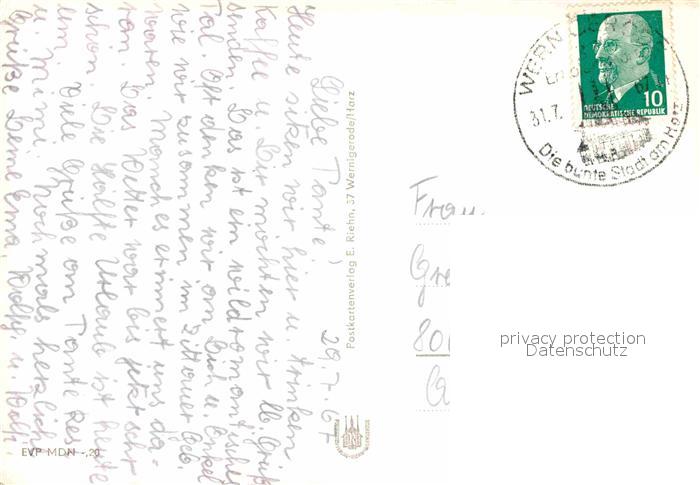 29.7.67
Liebe Tante!
Heute sitzen wir hier u. trinken
Kaffee u. Dir möchten wir lb. Grüße
senden. Das ist ein wildromantisches
Tal. Oft denken wir an Dich u. Onkel
wie wir zusammen im Zittauer Geb.
waren. Manches erinnert uns da-
ran. Das Wetter war bis jetzt sehr
schön. Die Hälfte Urlaub ist heute
um. Viele Grüße an Tante
u. Mimi. Nochmals herzliche
Grüße Deine Erna, u.
Postkartenverlag E. Riehn, 37 Wernigerode/Harz
EVP MDN -,20
WERNIGERODE
31.7. 67
Die bunte Stadt am Harz
DEUTSCHE
DEMOKRATISCHE REPUBLIK
10
Frau
801
privacy protection
Datenschutz